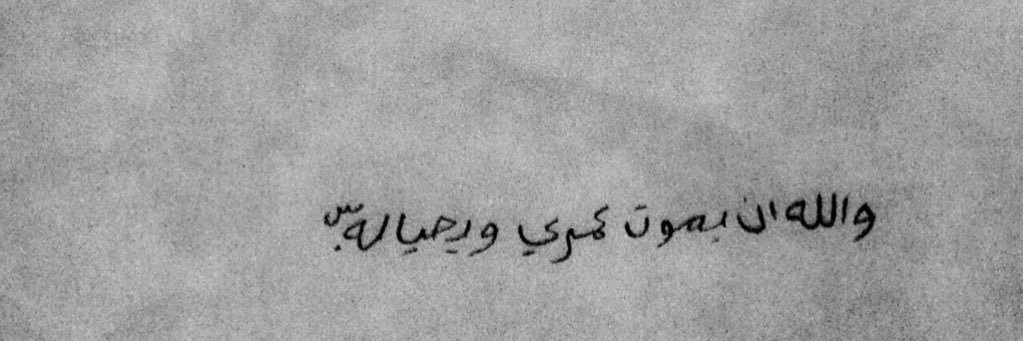 والله ان يموت عمري ويحياله بس